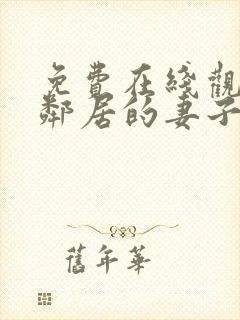 免費在綫觀
鄰居的妻子
舊年華